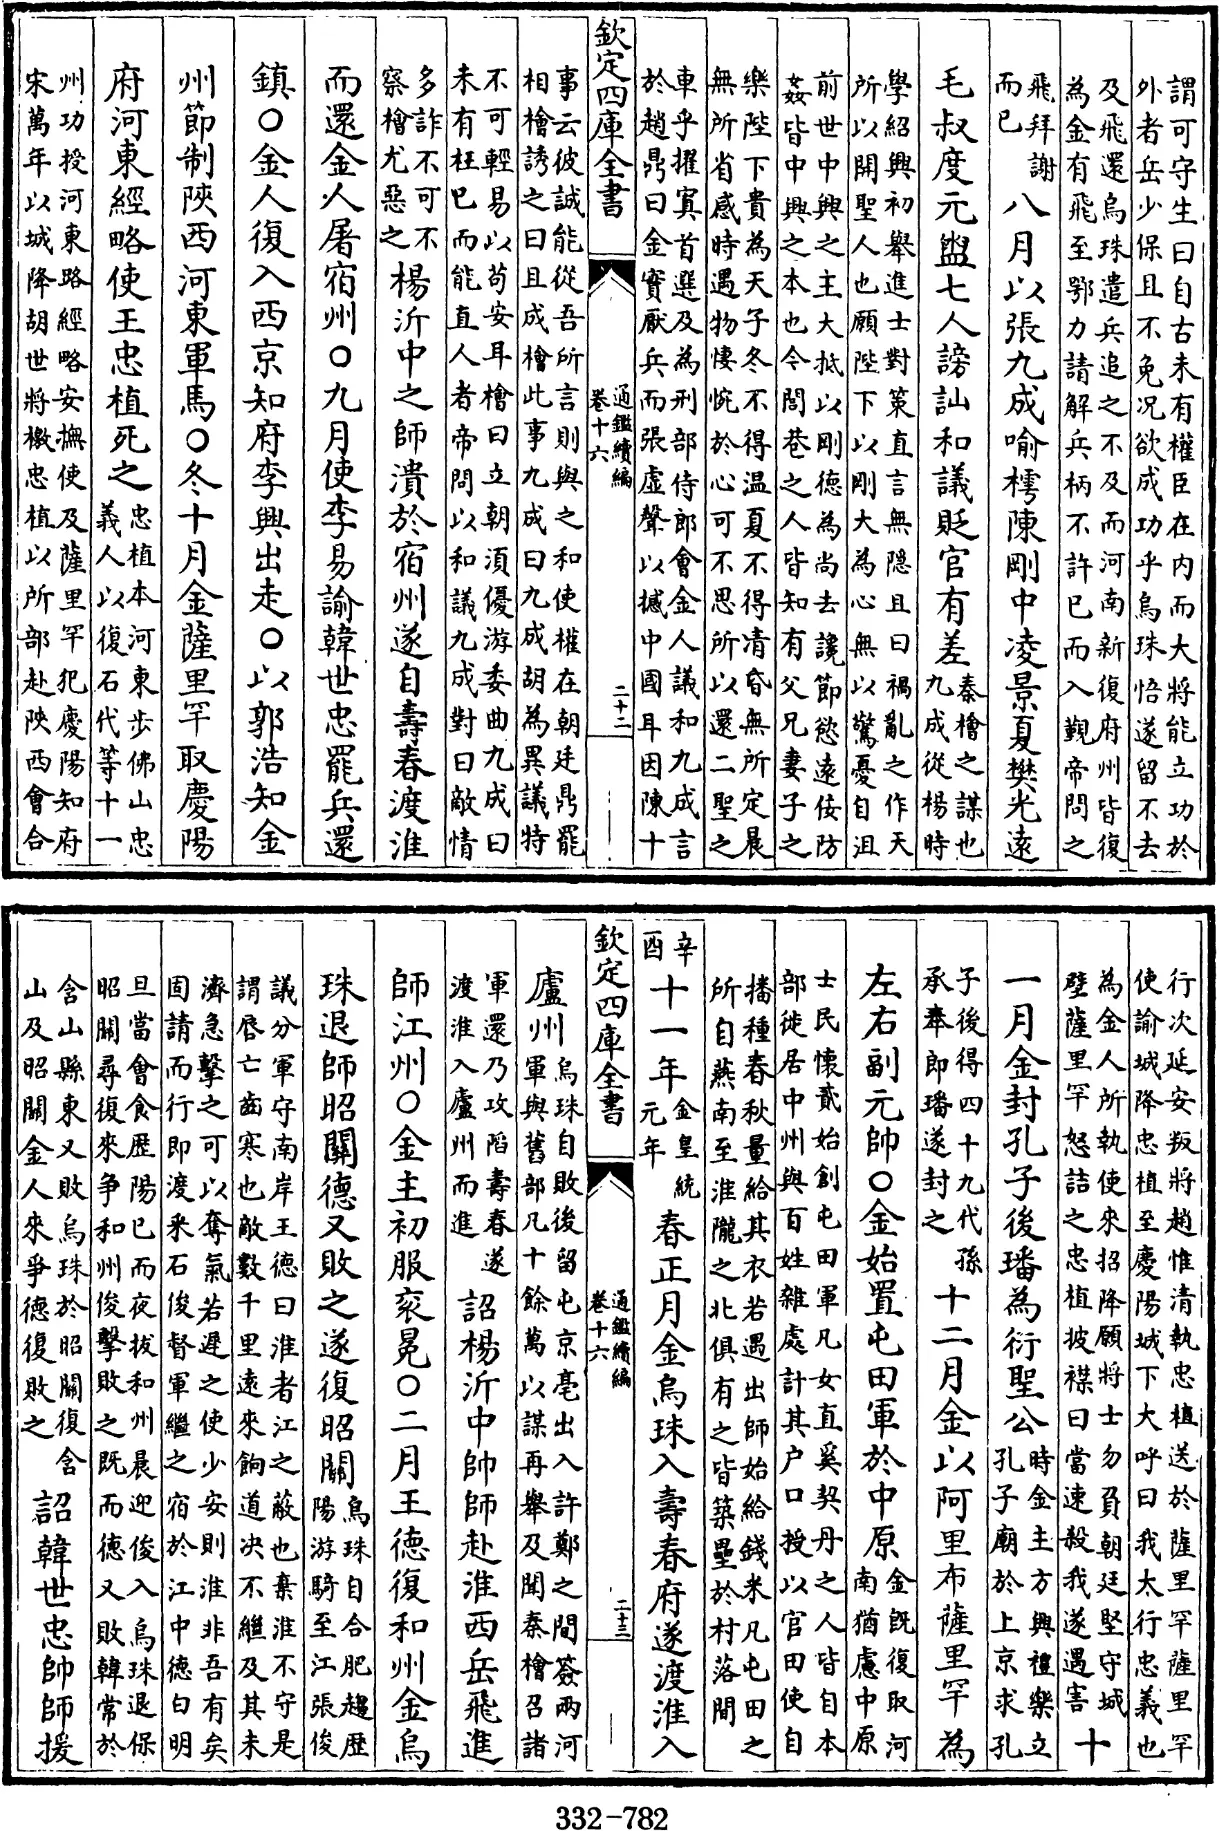 謂可守生曰自古未有權臣在内而大將能立功於
外者岳少保且不免况欲成功乎烏珠悟遂留不去
及飛還烏珠遣兵追之不及而河南新復府州皆復
為金有飛至鄂力請解兵柄不許已而入覲帝問之
飛拜謝
而已
八月以張九成喻樗陳剛中凌景夏樊光遠
毛叔度元盥七人謗訕和議貶官有差
秦檜之謀也
九成從楊時
學紹興初舉進士對策直言無隠且曰禍亂之作天
所以開聖人也願陛下以剛大為心無以驚憂自沮
前世中興之主大抵以剛德為尚去讒節慾遠佞防
姦皆中興之本也今閭巷之人皆知有父兄妻子之
樂陛下貴為天子冬不得温夏不得清昏無所定晨
無所省感時遇物悽惋於心可不思所以還二聖之
車乎擢寘首選及為刑部侍郎會金人議和九成言
於趙鼎曰金實厭兵而張虚聲以撼中國耳因陳十
欽定四庫全書
通鑑續編
卷十六
二十二
事云彼誠能從吾所言則與之和使權在朝廷鼎罷
相檜誘之曰且成檜此事九成曰九成胡為異議特
不可輕易以苟安耳檜曰立朝須優游委曲九成曰
未有枉己而能直人者帝問以和議九成對曰敵情
多詐不可不
察檜尤惡之
楊沂中之師潰於宿州遂自壽春渡淮
而還金人屠宿州○九月使李易諭韓世忠罷兵還
鎮○金人復入西京知府李興出走○以郭浩知金
州節制陝西河東軍馬○冬十月金薩里罕取慶陽
府河東經略使王忠植死之
忠植本河東步佛山忠
義人以復石代等十一
州功授河東路經略安撫使及薩里罕犯慶陽知府
宋萬年以城降胡世將檄忠植以所部赴陜西會合
行次延安叛將趙惟清執忠植送於薩里罕薩里罕
使諭城降忠植至慶陽城下大呼曰我太行忠義也
為金人所執使來招降願將士勿負朝廷堅守城
壁薩里罕怒詰之忠植披襟曰當速殺我遂遇害
十
一月金封孔子後璠為衍聖公
時金主方興禮樂立
孔子廟於上京求孔
子後得四十九代孫
承奉郎璠遂封之
十二月金以阿里布薩里罕為
左右副元帥○金始置屯田軍於中原
金既復取河
南猶慮中原
士民懷貳始創屯田軍凡女直奚契丹之人皆自本
部徙居中州與百姓雜處計其户口授以官田使自
播種春秋量給其衣若遇出師始給錢米凡屯田之
所自燕南至淮隴之北俱有之皆築壘於村落間
辛
酉
十一年
金皇統
元年
春正月金烏珠入壽春府遂渡淮入
欽定四庫全書
通鑑續編
卷十六
二十三
廬州
烏珠自敗後留屯京亳出入許鄭之間簽兩河
軍與舊部凡十餘萬以謀再舉及聞秦檜召諸
軍還乃攻陷壽春遂
渡淮入廬州而進
詔楊沂中帥師赴淮西岳飛進
師江州○金主初服衮冕○二月王德復和州金烏
珠退師昭關德又敗之遂復昭關
烏珠自合肥趨歷
陽游騎至江張俊
議分軍守南岸王德曰淮者江之蔽也棄淮不守是
謂唇亡齒寒也敵數千里遠來餉道决不繼及其未
濟急擊之可以奪氣若遲之使少安則淮非吾有矣
固請而行即渡釆石俊督軍繼之宿於江中德曰明
旦當會食歷陽已而夜拔和州晨迎俊入烏珠退保
昭關尋復來争和州俊擊敗之既而德又敗韓常於
含山縣東又敗烏珠於昭關復含
山及昭關金人來爭德復敗之
詔韓世忠帥師援
332-782